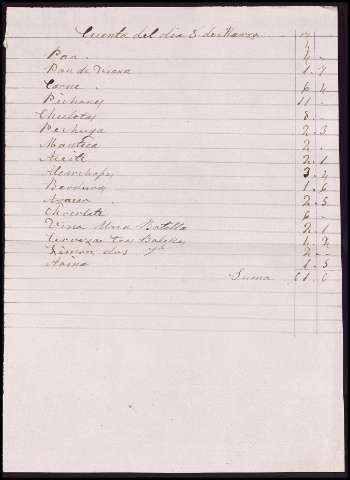 Cuenta del dia 8 de Marzo
Pan . 4 -
Pan de Viena 1 . 7
Carne . 6 4
Pichones 11 -
Chuletas 8 -
Pechuga 2 . 3
Manteca 2 .
Aceite 2 . 1
Alcarchofas 3 . 4
1 . 6
Azucar . 2 . 5
Chocolate 6 -
Vino Una Botella 2 . 1
Cerveza tres Botellas 1 . 2
Limon dos 2 -
1 . 5
Suma 61 . 6